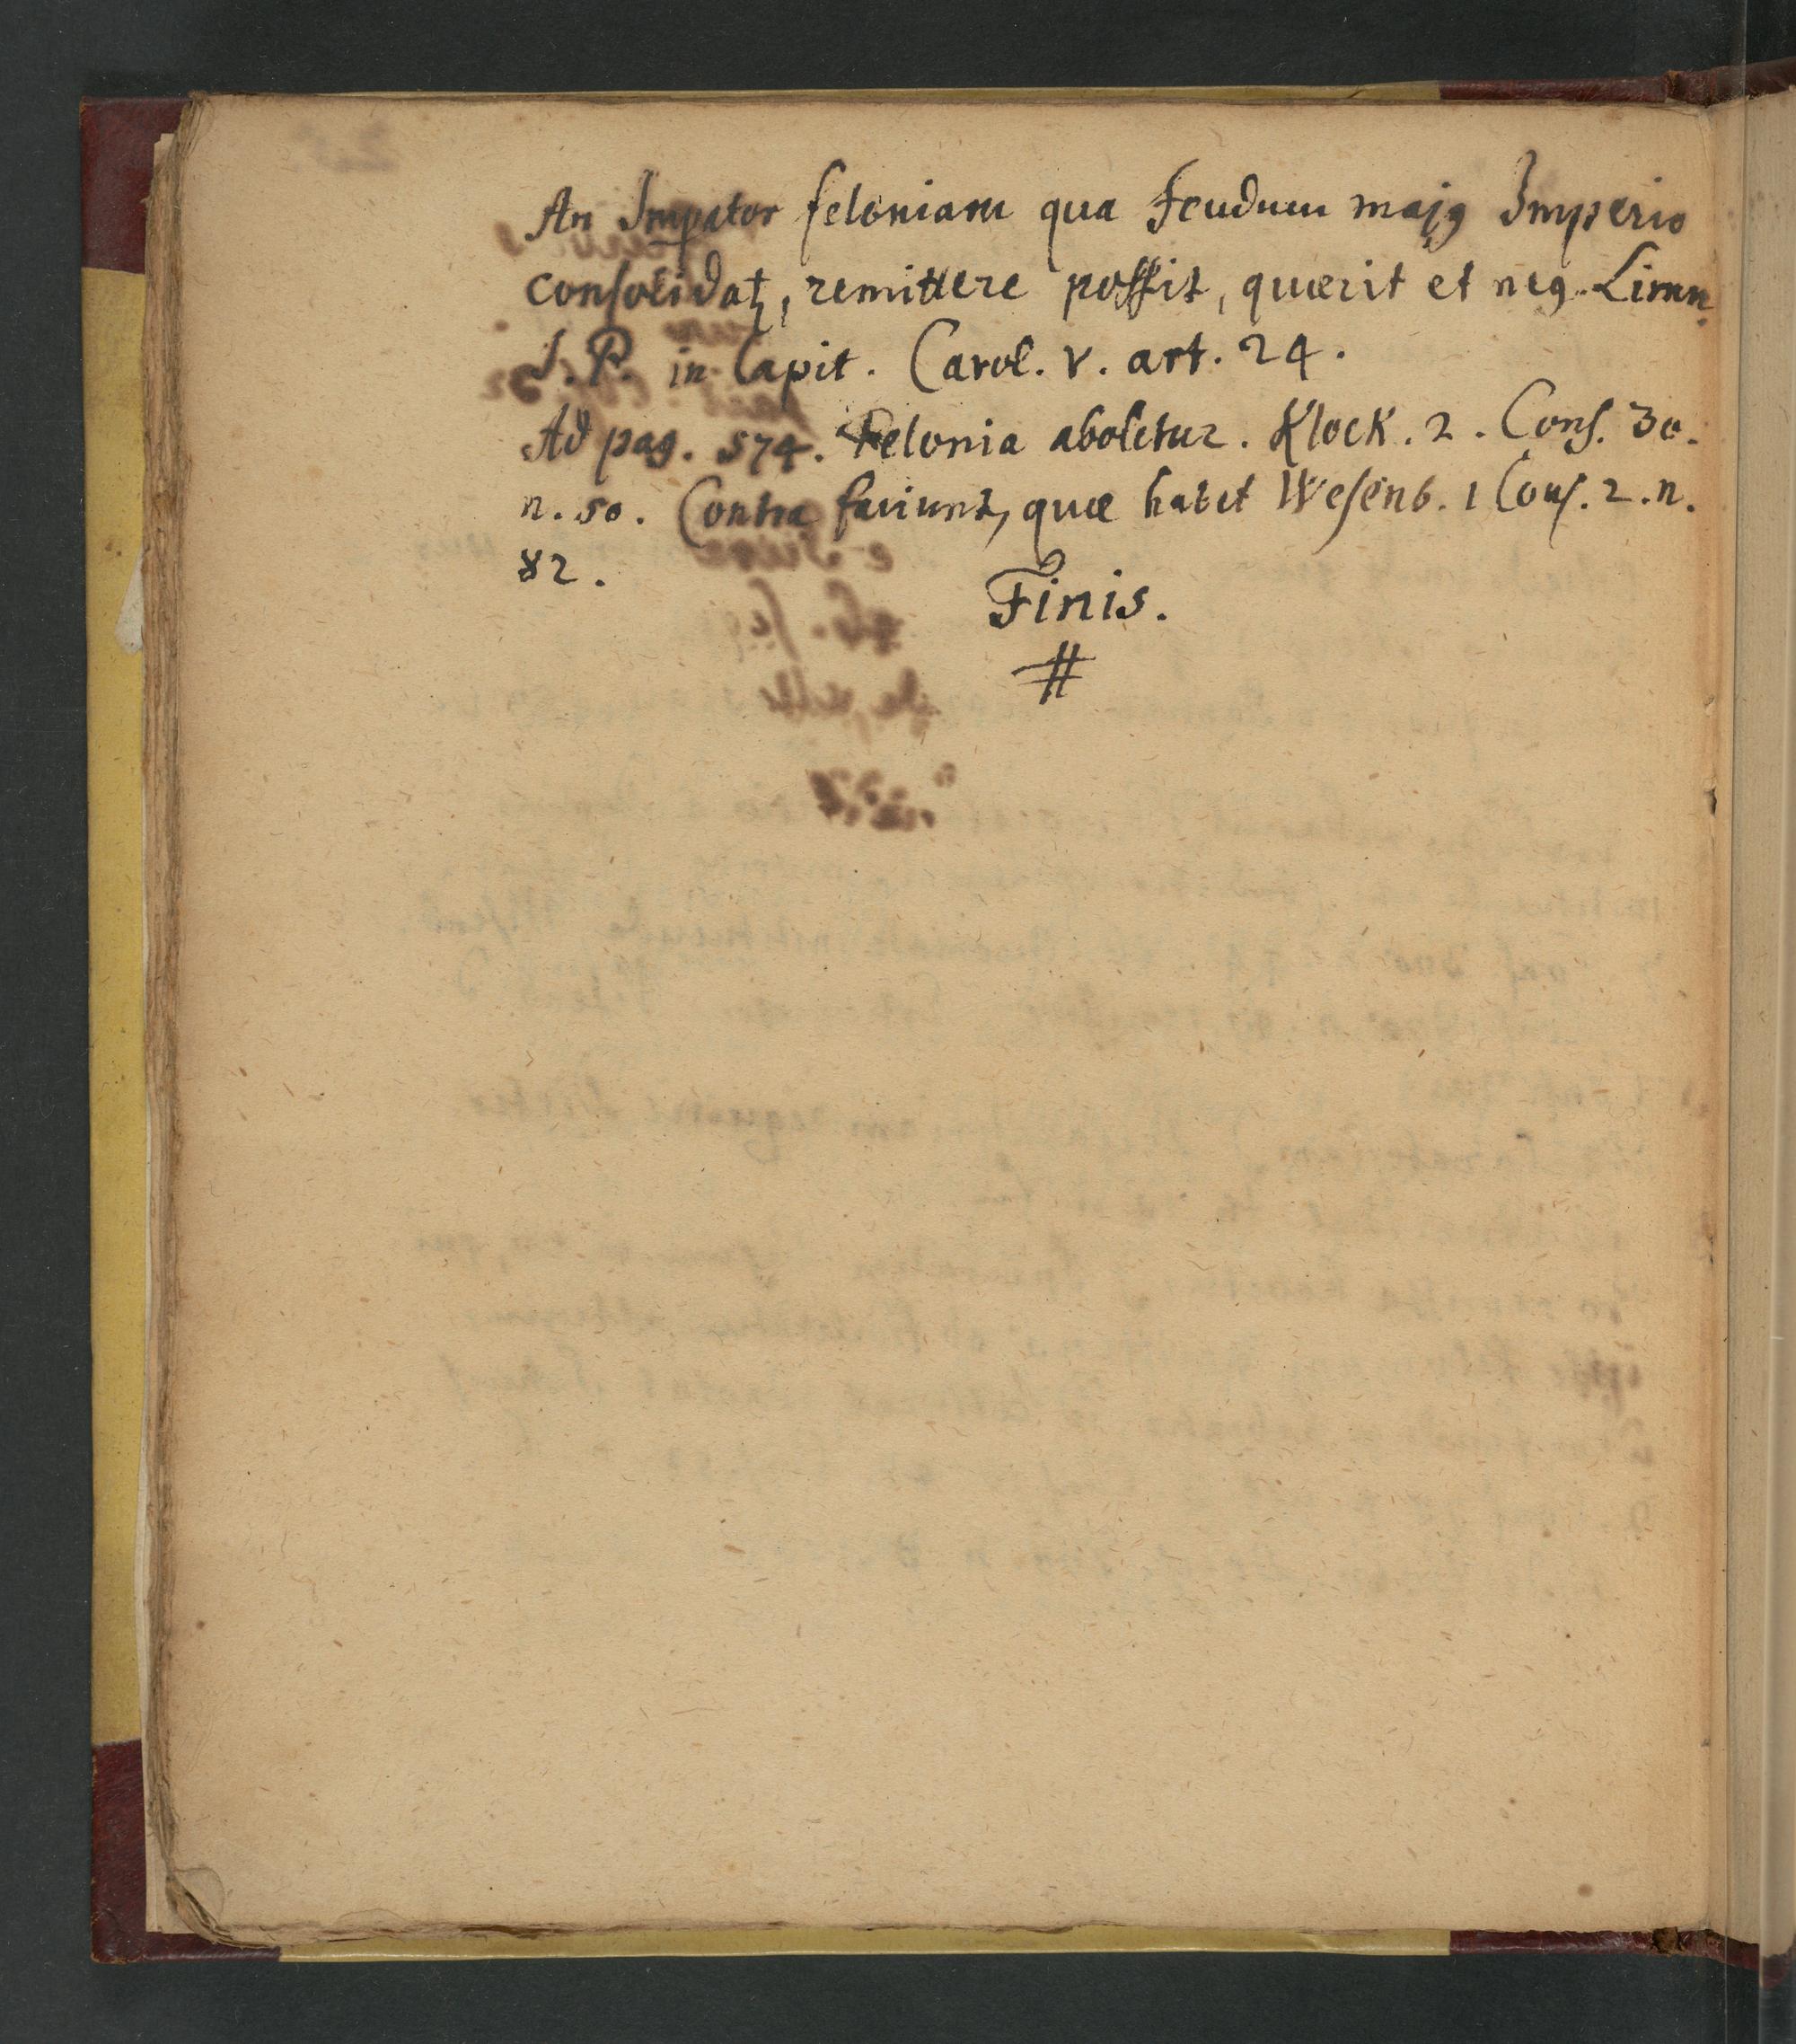 An Impator feloniam qua Feudum majꝯ Imperio
consolidatꝛ, remittere possit, quærit et neg. Limn.
J. P. in Capit. Carol. V. art. 24.
Ad pag. 574. Felonia aboletur. Klock. 2. Cons. 30.
n. 50. Contra faciunt, quæ habet Wesenb. 1 Cons. 2. n.
82.
Finis.